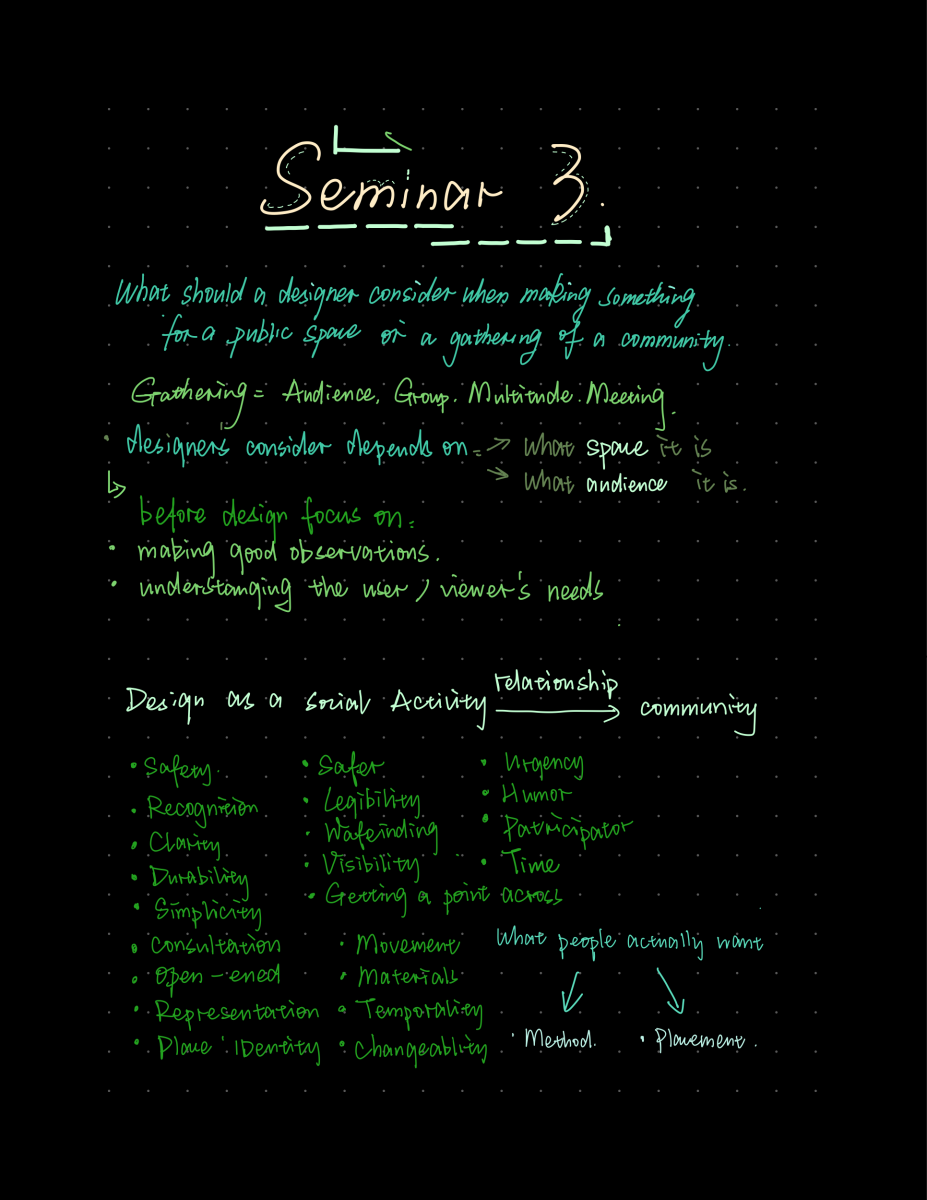 Seminar 3.
What should a designer consider when making something
for a public space or a gathering of a community.
Gathering = Audience, Group. Multitude. Meeting.
• designers consider depends on: → what space it is
→ what audience it is.
↳
before design focus on:
• making good observations.
• understanging the user / viewer's needs
Design as a social Activity relationship → community
• Safety.
• Recognition
• Clarity
• Durability
• Simplicity
• Consultation
• Open-ened
• Representation
• Place IDentity
• Safer
• Legibility
• Wafeinding
• Visibility
• Getting a point across
• Movement
• Materials
• Temporality
• Changeablity
• Urgency
• Humor
• Patricipator
• Time
What people actually want
• Method.
• Placement.